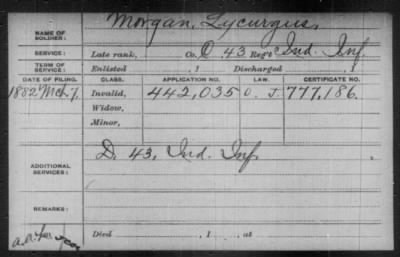 NAME OF SOLDIER: Morgan, Lycurgus,
SERVICE: Late rank, Co. O 43 Reg't Ind. Inf.
TERM OF SERVICE: Enlisted , 1 Discharged , 1
DATE OF FILING. CLASS. APPLICATION NO. LAW. CERTIFICATE NO.
1882 Mch 7. Invalid, 442,035 O. J 777,186.
Widow,
Minor,
ADDITIONAL SERVICES: D. 43, Ind. Inf.
REMARKS:
Died , 1 , at